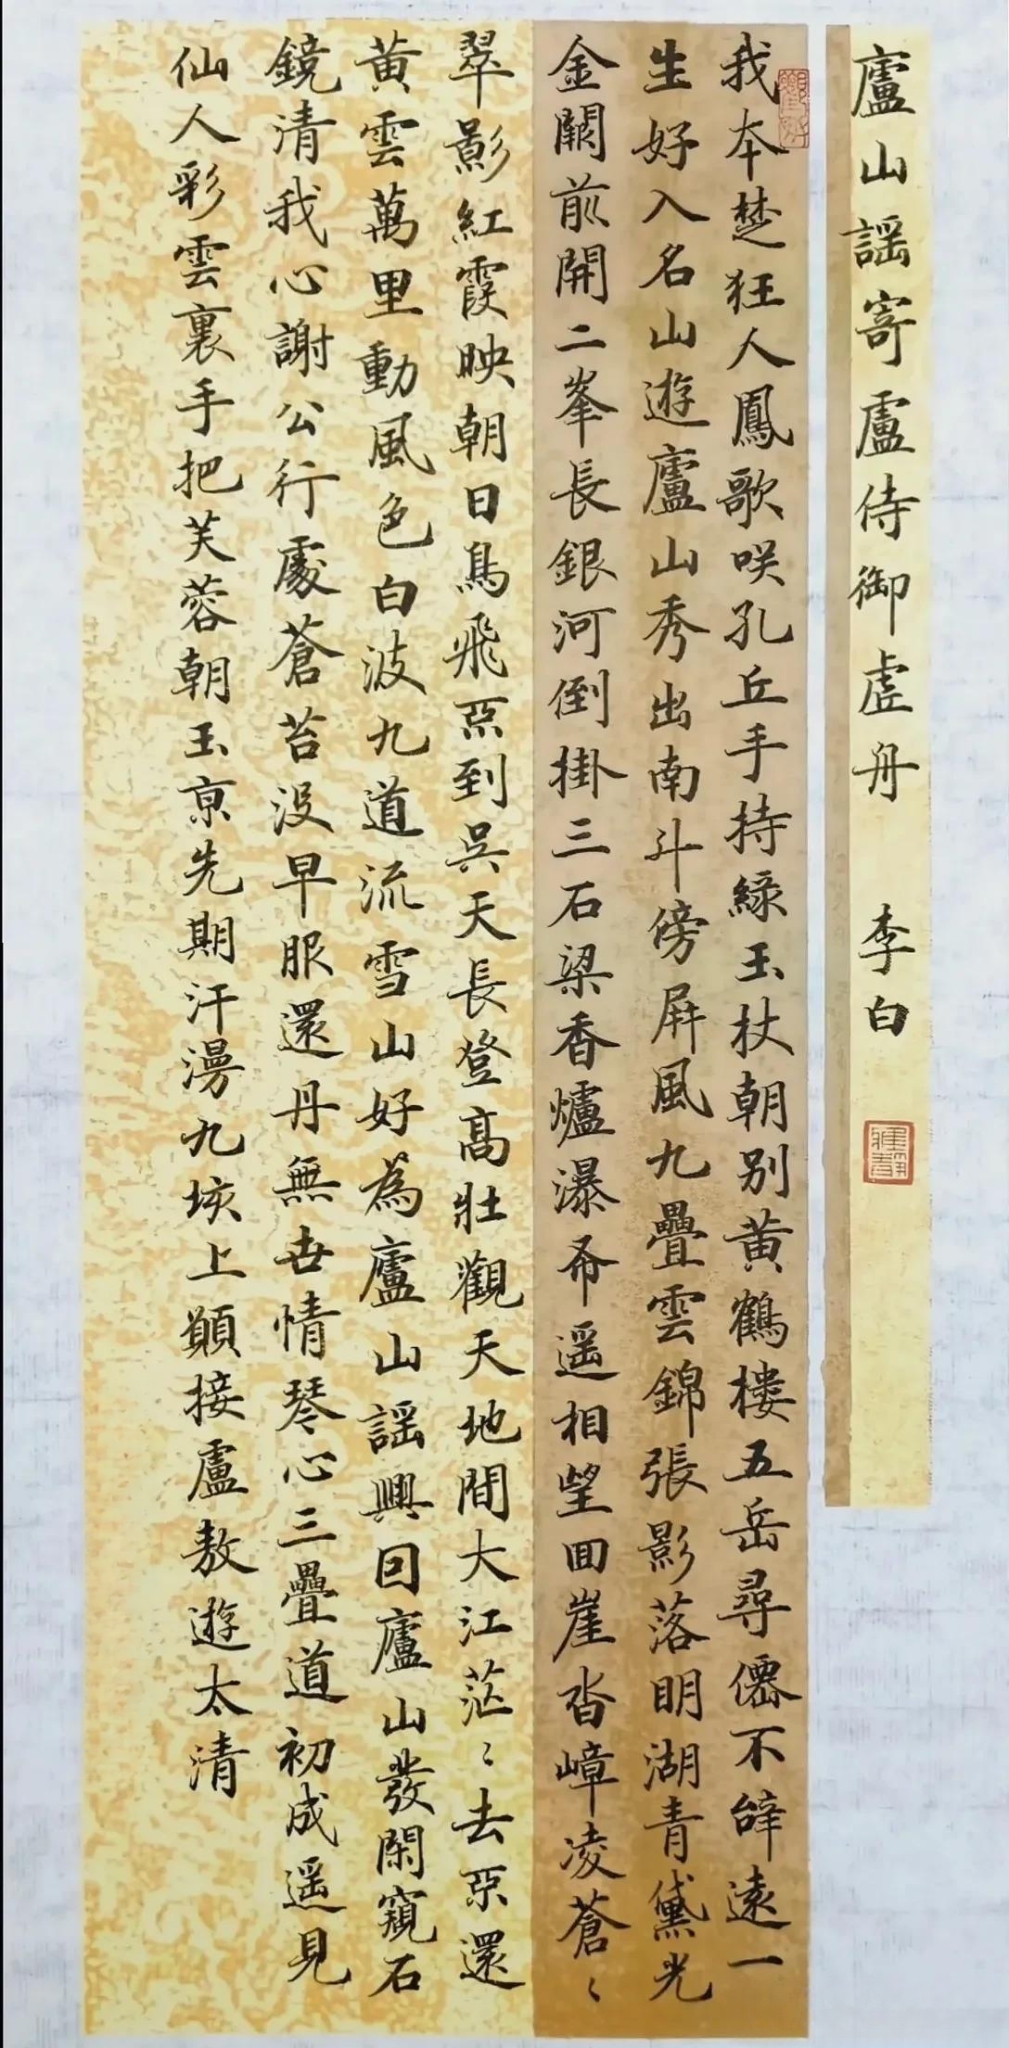 廬山謠寄盧侍御虛舟　李白
我本楚狂人鳳歌咲孔丘手持綠玉杖朝别黃鶴樓五岳尋僊不辝遠一
生好入名山遊廬山秀出南斗傍屏風九疊雲錦張影落明湖青黛光
金闕前開二峯長銀河倒掛三石梁香爐瀑布遥相望囬崖沓嶂凌蒼〻
翠影紅霞映朝日鳥飛不到吳天長登高壯觀天地間大江茫〻去不還
黃雲萬里動風色白波九道流雪山好為廬山謠興囙廬山發閑窺石
鏡清我心謝公行處蒼苔没早服還丹無世情琴心三疊道初成遥見
仙人彩雲裏手把芙蓉朝玉京先期汗漫九垓上願接盧敖遊太清